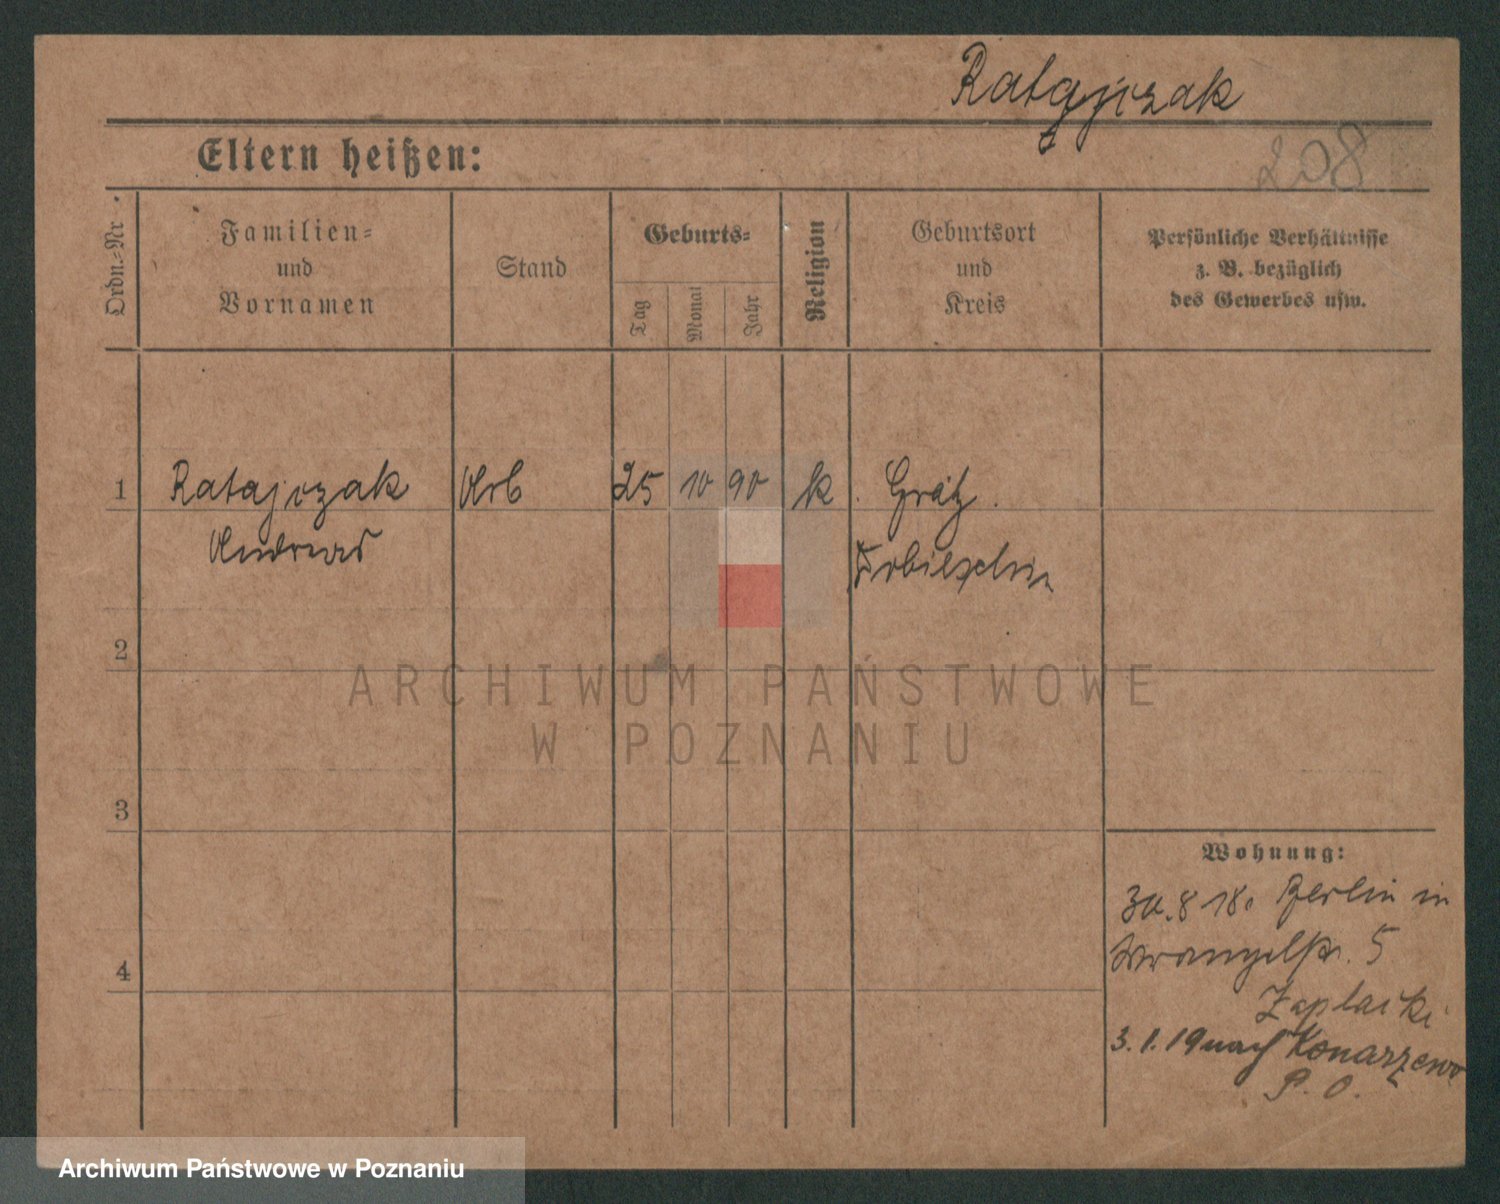 Ratajczak
208
Eltern heißen:
Ordn.-Nr
Familien-
und
Vornamen
Stand
Geburts-
Tag
Monat
Jahr
Religion
Geburtsort
und
Kreis
Persönliche Verhältnisse
z. B. bezüglich
des Gewerbes usw.
1 Ratajczak Arb 25 10 90 k. Grätz.
Andreas
2
ARCHIWUM PAŃSTWOWE
W POZNANIU
3
Wohnung:
30.8 18. Berlin in
4 Wrangelstr. 5
Zaplacki
3.1.19 nach Konarzewo
P. O.
Archiwum Państwowe w Poznaniu